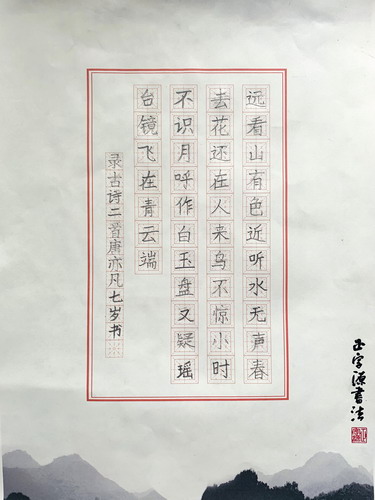 远看山有色近听水无声春
去花还在人来鸟不惊小时
不识月呼作白玉盘又疑瑶
台镜飞在青云端
录古诗二首唐亦凡七岁书
正字源書法